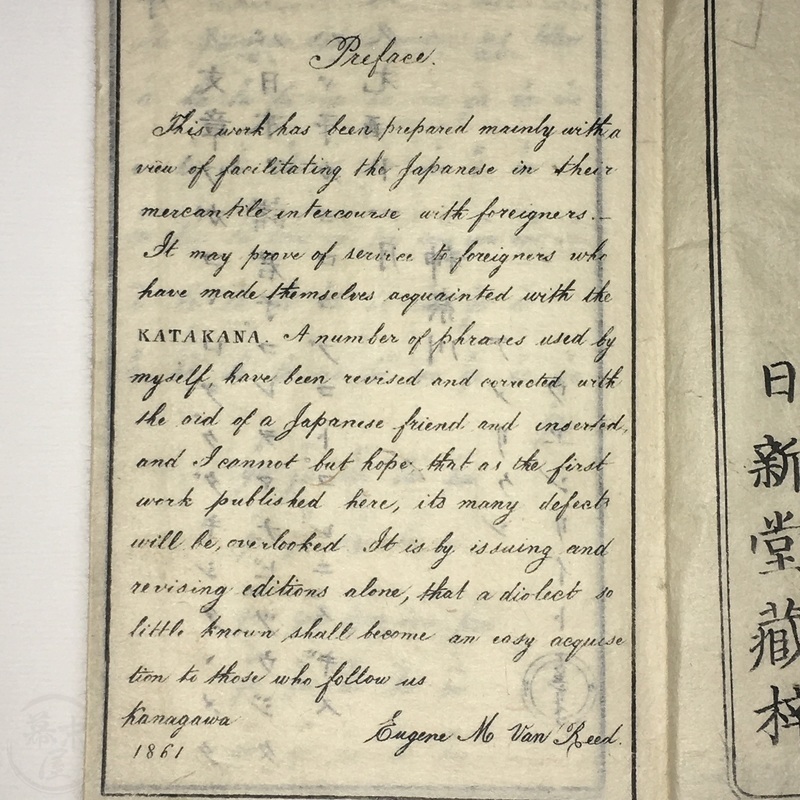 Preface.
This work has been prepared mainly with a
view of facilitating the Japanese in their
mercantile intercourse with foreigners.—
It may prove of service to foreigners who
have made themselves acquainted with the
KATAKANA. A number of phrases used by
myself, have been revised and corrected with
the aid of a Japanese friend and inserted,
and I cannot but hope that as the first
work published here, its many defects
will be, overlooked It is by issuing and
revising editions alone, that a dialect so
little known shall become an easy acquise
tion to those who follow us
Kanagawa
1861
Eugene M Van Reed.
日新堂蔵梓